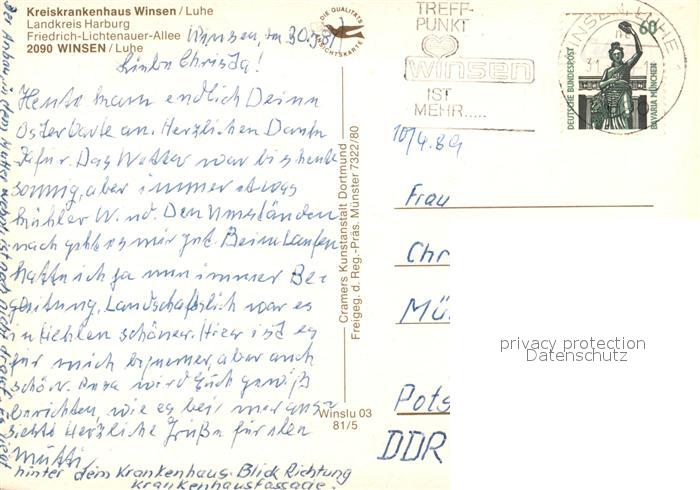 Kreiskrankenhaus Winsen / Luhe
Landkreis Harburg
Friedrich-Lichtenauer-Allee
2090 WINSEN / Luhe
DIE QUALITÄTS
ANSICHTSKARTE
Winsen, im 30.
Liebe Christa!
Heute kam endlich Deine
Osterkarte an. Herzlichen Dank
dafür. Das Wetter war bis heute
sonnig, aber immer etwas
kühler W. nd. Den Umständen
nach geht es mir gut. Beim Laufen
hatte ich ja nun immer Be-
gleitung. Landschaftlich war es
in schöner. Hier ist es
für mich bequemer, aber auch
schön. wird Euch gewiß
berichten, wie es bei mir
Herzliche Grüße für alle
Mutti
hinter dem Krankenhaus. Blick Richtung
Krankenhausfassade.
Der Anbau in dem Mutter ist noch nicht
Cramers Kunstanstalt Dortmund
Freigeg. d. Reg.-Präs. Münster 7322/80
Winslu 03
81/5
TREFF-
PUNKT
winsen
IST
MEHR.....
WINSEN, LUHE
31.
DEUTSCHE BUNDESPOST
60
BAVARIA MÜNCHEN
10/4.89
Frau
Chr
Mü
Pots
DDR
privacy protection
Datenschutz